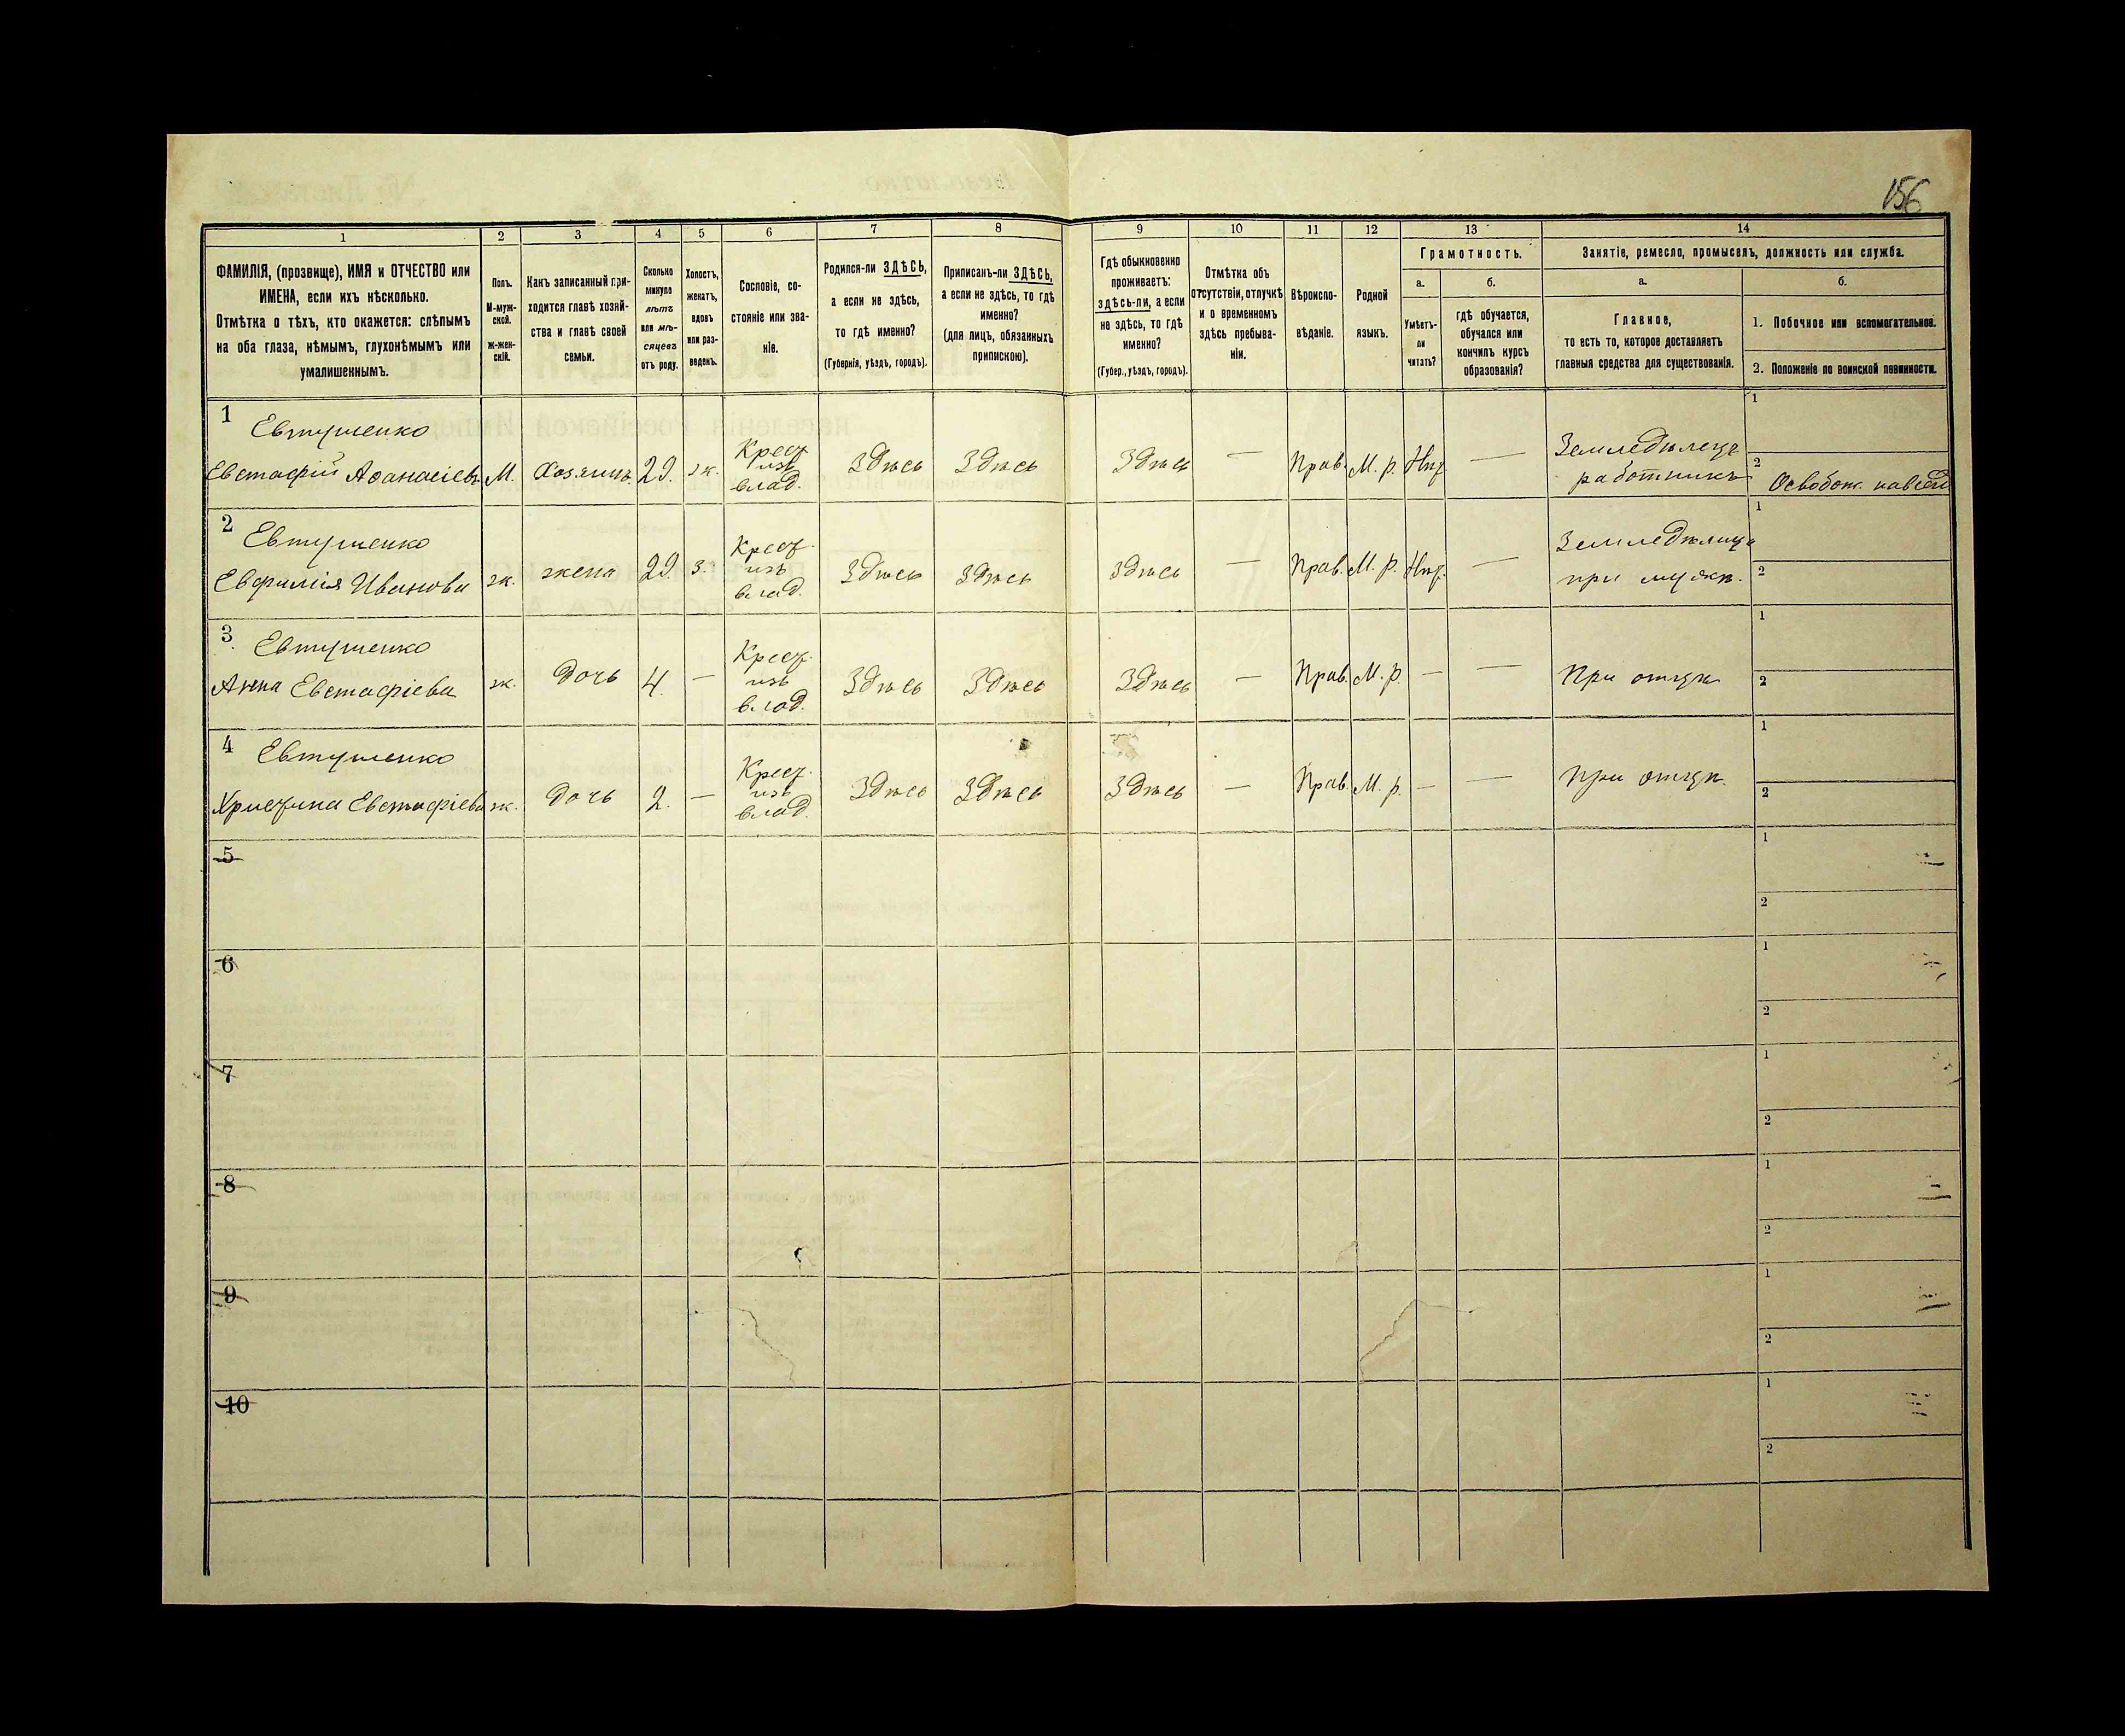 156
1 2 3 4 5 6 7 8 9 10 11 12 13 14
ФАМИЛІЯ, (прозвище), ИМЯ и ОТЧЕСТВО или
ИМЕНА, если ихъ нѣсколько.
Отмѣтка о тѣхъ, кто окажется: слѣпымъ
на оба глаза, нѣмымъ, глухонѣмымъ или
умалишеннымъ.
Полъ.
М-муж-
ской.
Ж-жен-
скій.
Какъ записанный при-
ходится главѣ хозяй-
ства и главѣ своей
семьи.
Сколько
минуло
лѣтъ
или мѣ-
сяцевъ
отъ роду.
Холостъ,
женатъ,
вдовъ
или раз-
веденъ.
Сословіе, со-
стояніе или зва-
ніе.
Родился-ли ЗДѢСЬ,
а если не здѣсь,
то гдѣ именно?
(Губернія, уѣздъ, городъ).
Приписанъ-ли ЗДѢСЬ,
а если не здѣсь, то гдѣ
именно?
(для лицъ, обязанныхъ
припискою).
Гдѣ обыкновенно
проживаетъ:
здѣсь-ли, а если
не здѣсь, то гдѣ
именно?
(Губер., уѣздъ, городъ).
Отмѣтка объ
отсутствіи, отлучкѣ
и о временномъ
здѣсь пребыва-
ніи.
Вѣроиспо-
вѣданіе.
Родной
языкъ.
Грамотность.
а.
Умѣетъ-
ли
читать?
б.
гдѣ обучается,
обучался или
кончилъ курсъ
образованія?
Занятіе, ремесло, промыселъ, должность или служба.
а.
Главное,
то есть то, которое доставляетъ
главныя средства для существованія.
б.
1. Побочное или вспомогательное.
2. Положеніе по воинской повинности.
1
Евтушенко
Евстафій Аѳанасіевъ М. Хозяинъ 29. ж. Крест. изъ влад. Здѣсь Здѣсь Здѣсь — Прав. М. р. Нѣт — Земледѣлецъ работникъ
1
2 Освобож.
2
Евтушенко
Евфимія Иванова ж. жена 29. з. Крест. изъ влад. Здѣсь Здѣсь Здѣсь — Прав. М. р. Нѣт. — Земледѣлица при мужѣ.
1
2
3
Евтушенко
Анна Евстафіева ж. дочь 4. — Крест. изъ влад. Здѣсь Здѣсь Здѣсь — Прав. М. р. — — При отцѣ
1
2
4
Евтушенко
Христина Евстафіева ж. дочь 2. — Крест. изъ влад. Здѣсь Здѣсь Здѣсь — Прав. М. р. — — При отцѣ.
1
2
5
1
2
6
1
2
7
1
2
8
1
2
9
1
2
10
1
2